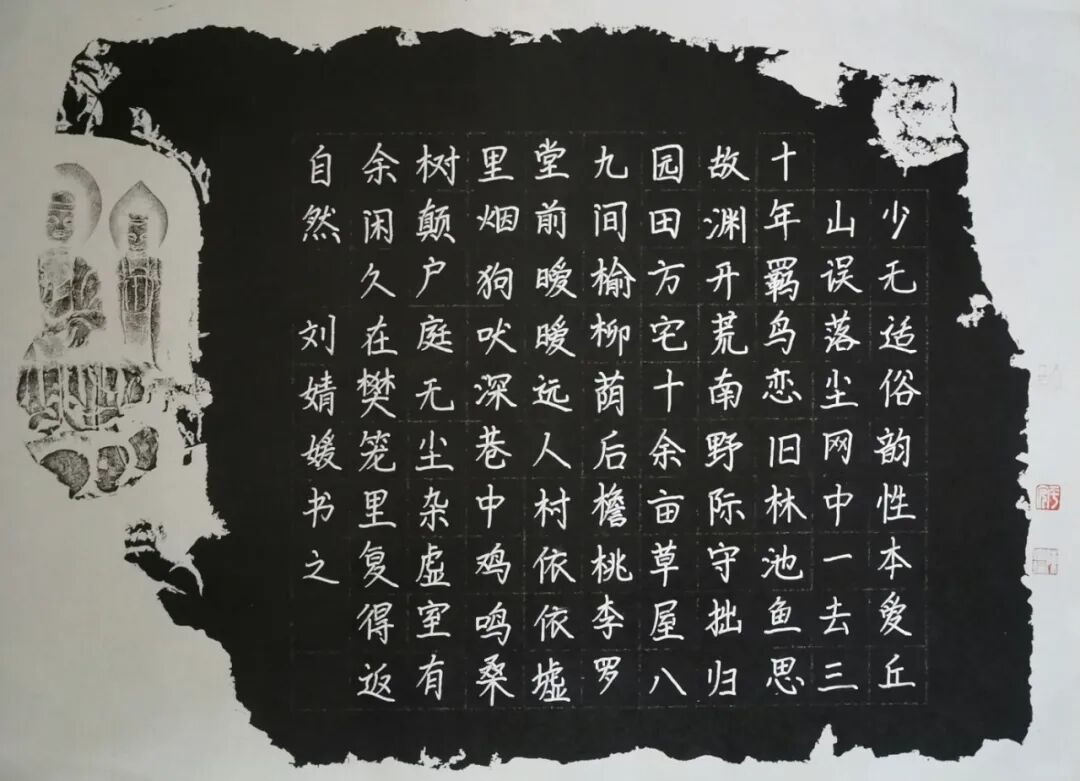 少无适俗韵性本爱丘
山误落尘网中一去三
十年羁鸟恋旧林池鱼思
故渊开荒南野际守拙归
园田方宅十余亩草屋八
九间榆柳荫后檐桃李罗
堂前暧暧远人村依依墟
里烟狗吠深巷中鸡鸣桑
树颠户庭无尘杂虚室有
余闲久在樊笼里复得返
自然 刘婧媛书之